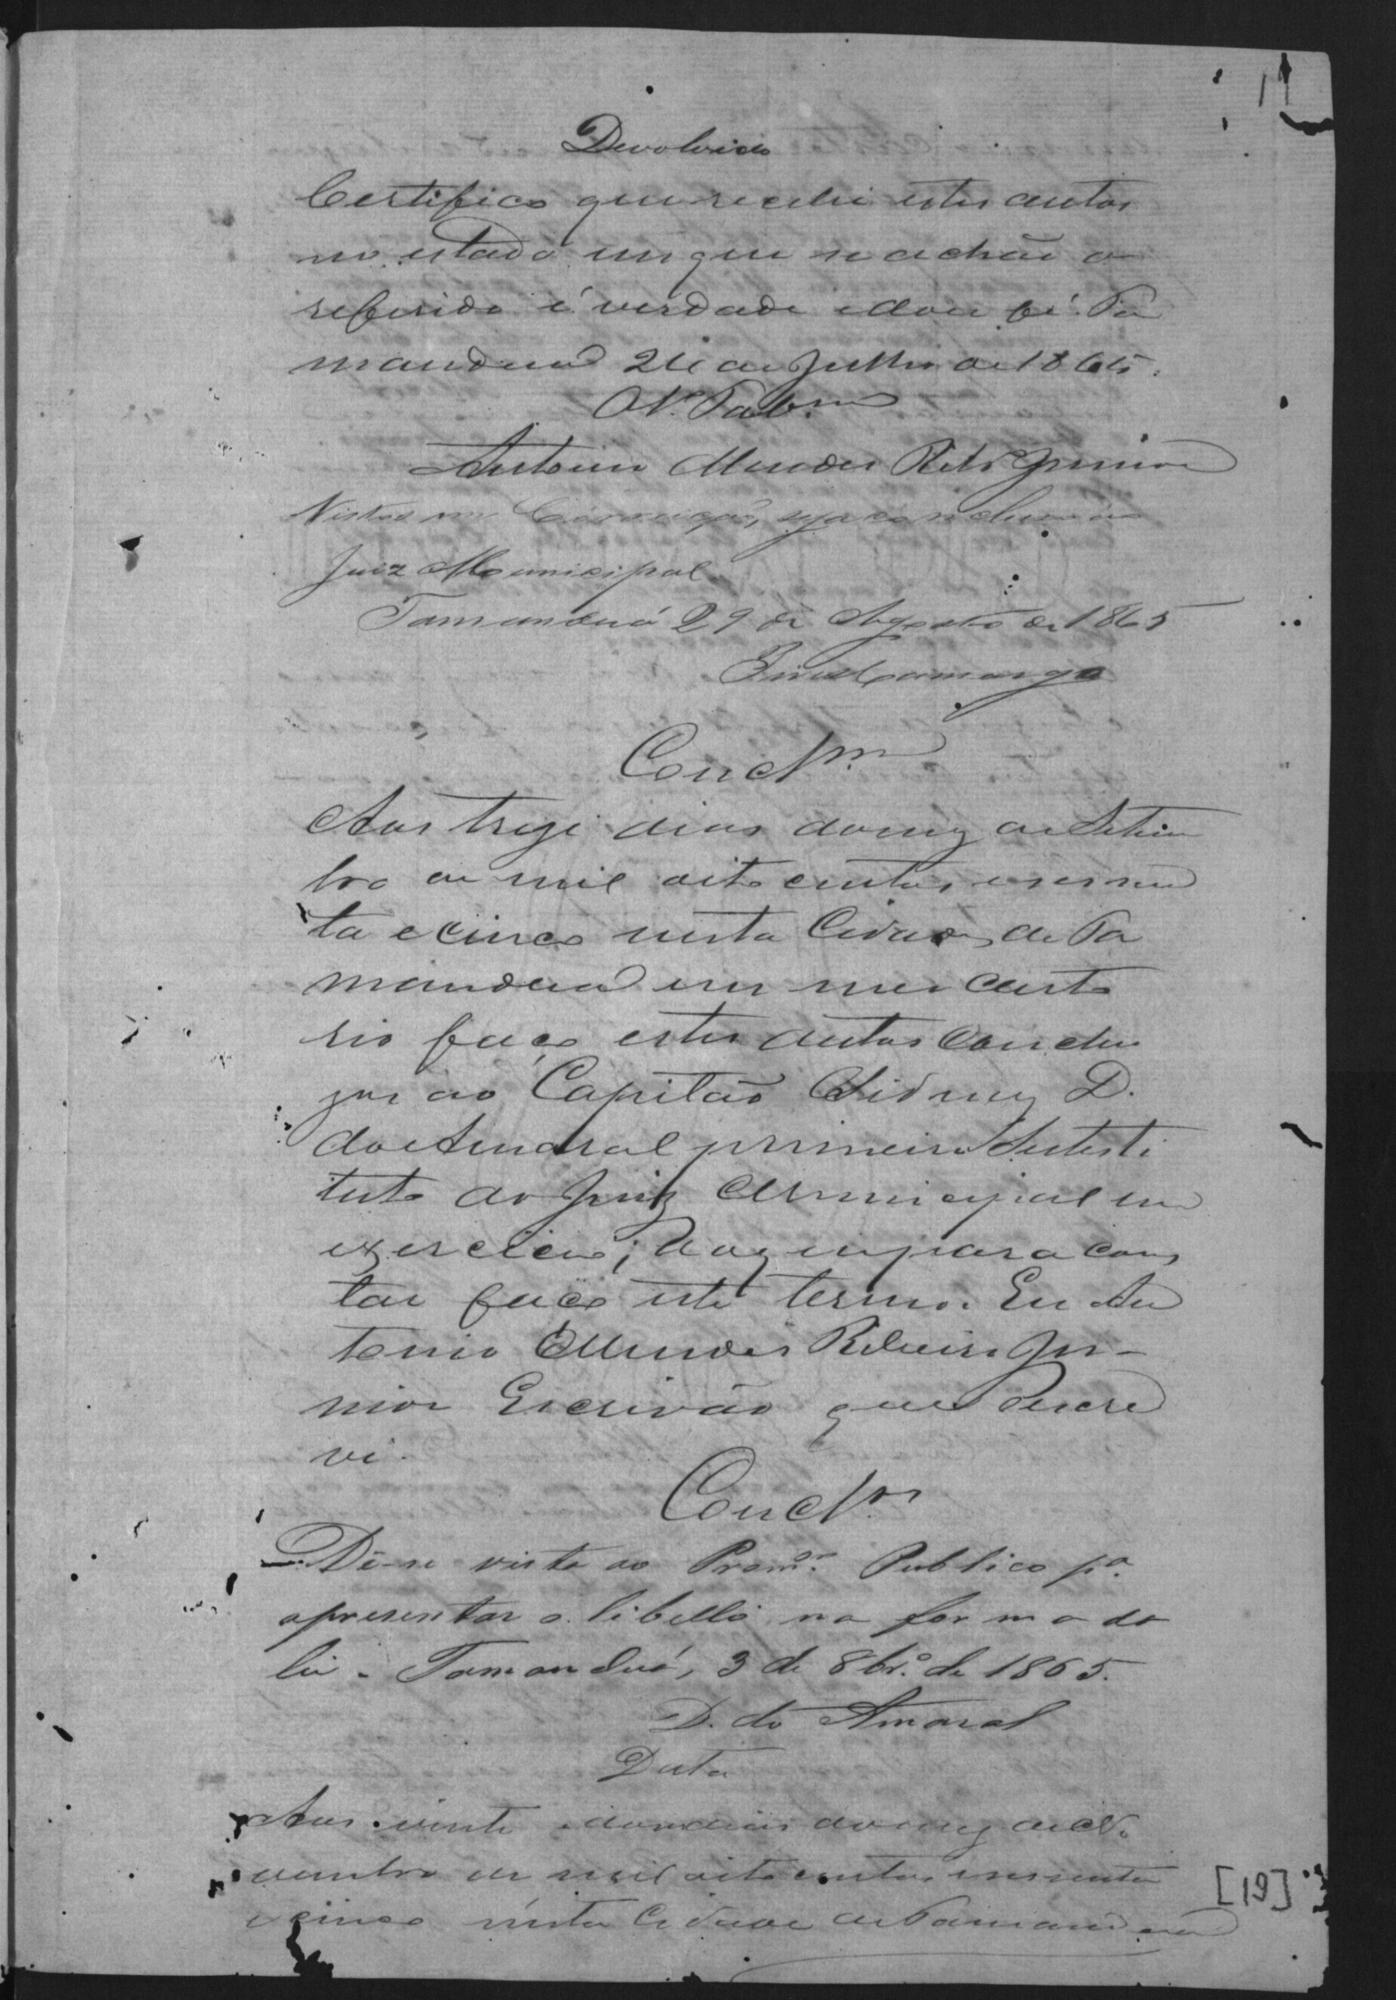 11
Devolvido
Certifico que recebi estes autos
no estado em que se achão o
referido é verdade e dou fé. Ta
manduá 24 de Julho de 1865.
O 1º Tabam
Antonio Mendes Ribrº Junior
Vistos em Correição, seja concluso ao
Juiz Municipal
Tamanduá 29 de Agosto de 1865
Camargo
Conclm
Aos treze dias do mez de Setem
bro de mil oito centos e sessen
ta e cinco nesta Cidade de Ta
manduá em meu Carto
rio faço estes autos Conclu
zos ao Capitão Sidney D.
do Amaral primeiro Substi
tuto do Juiz Municipal em
exercicio; do que para cons
tar faço este termo. Eu An
tonio Mendes Ribeiro Ju-
nior Escrivão que escre
vi.
Conclos
Dê-se vista ao Promor Publico pª
apresentar o libello na forma da
lei. Tamanduá, 3 de 8brº de 1865.
D. do Amaral
Data
Aos vinte e dous dias do mez de No
vembro de mil oito centos e sessenta
e cinco nesta Cidade de Tamanduá
[19]